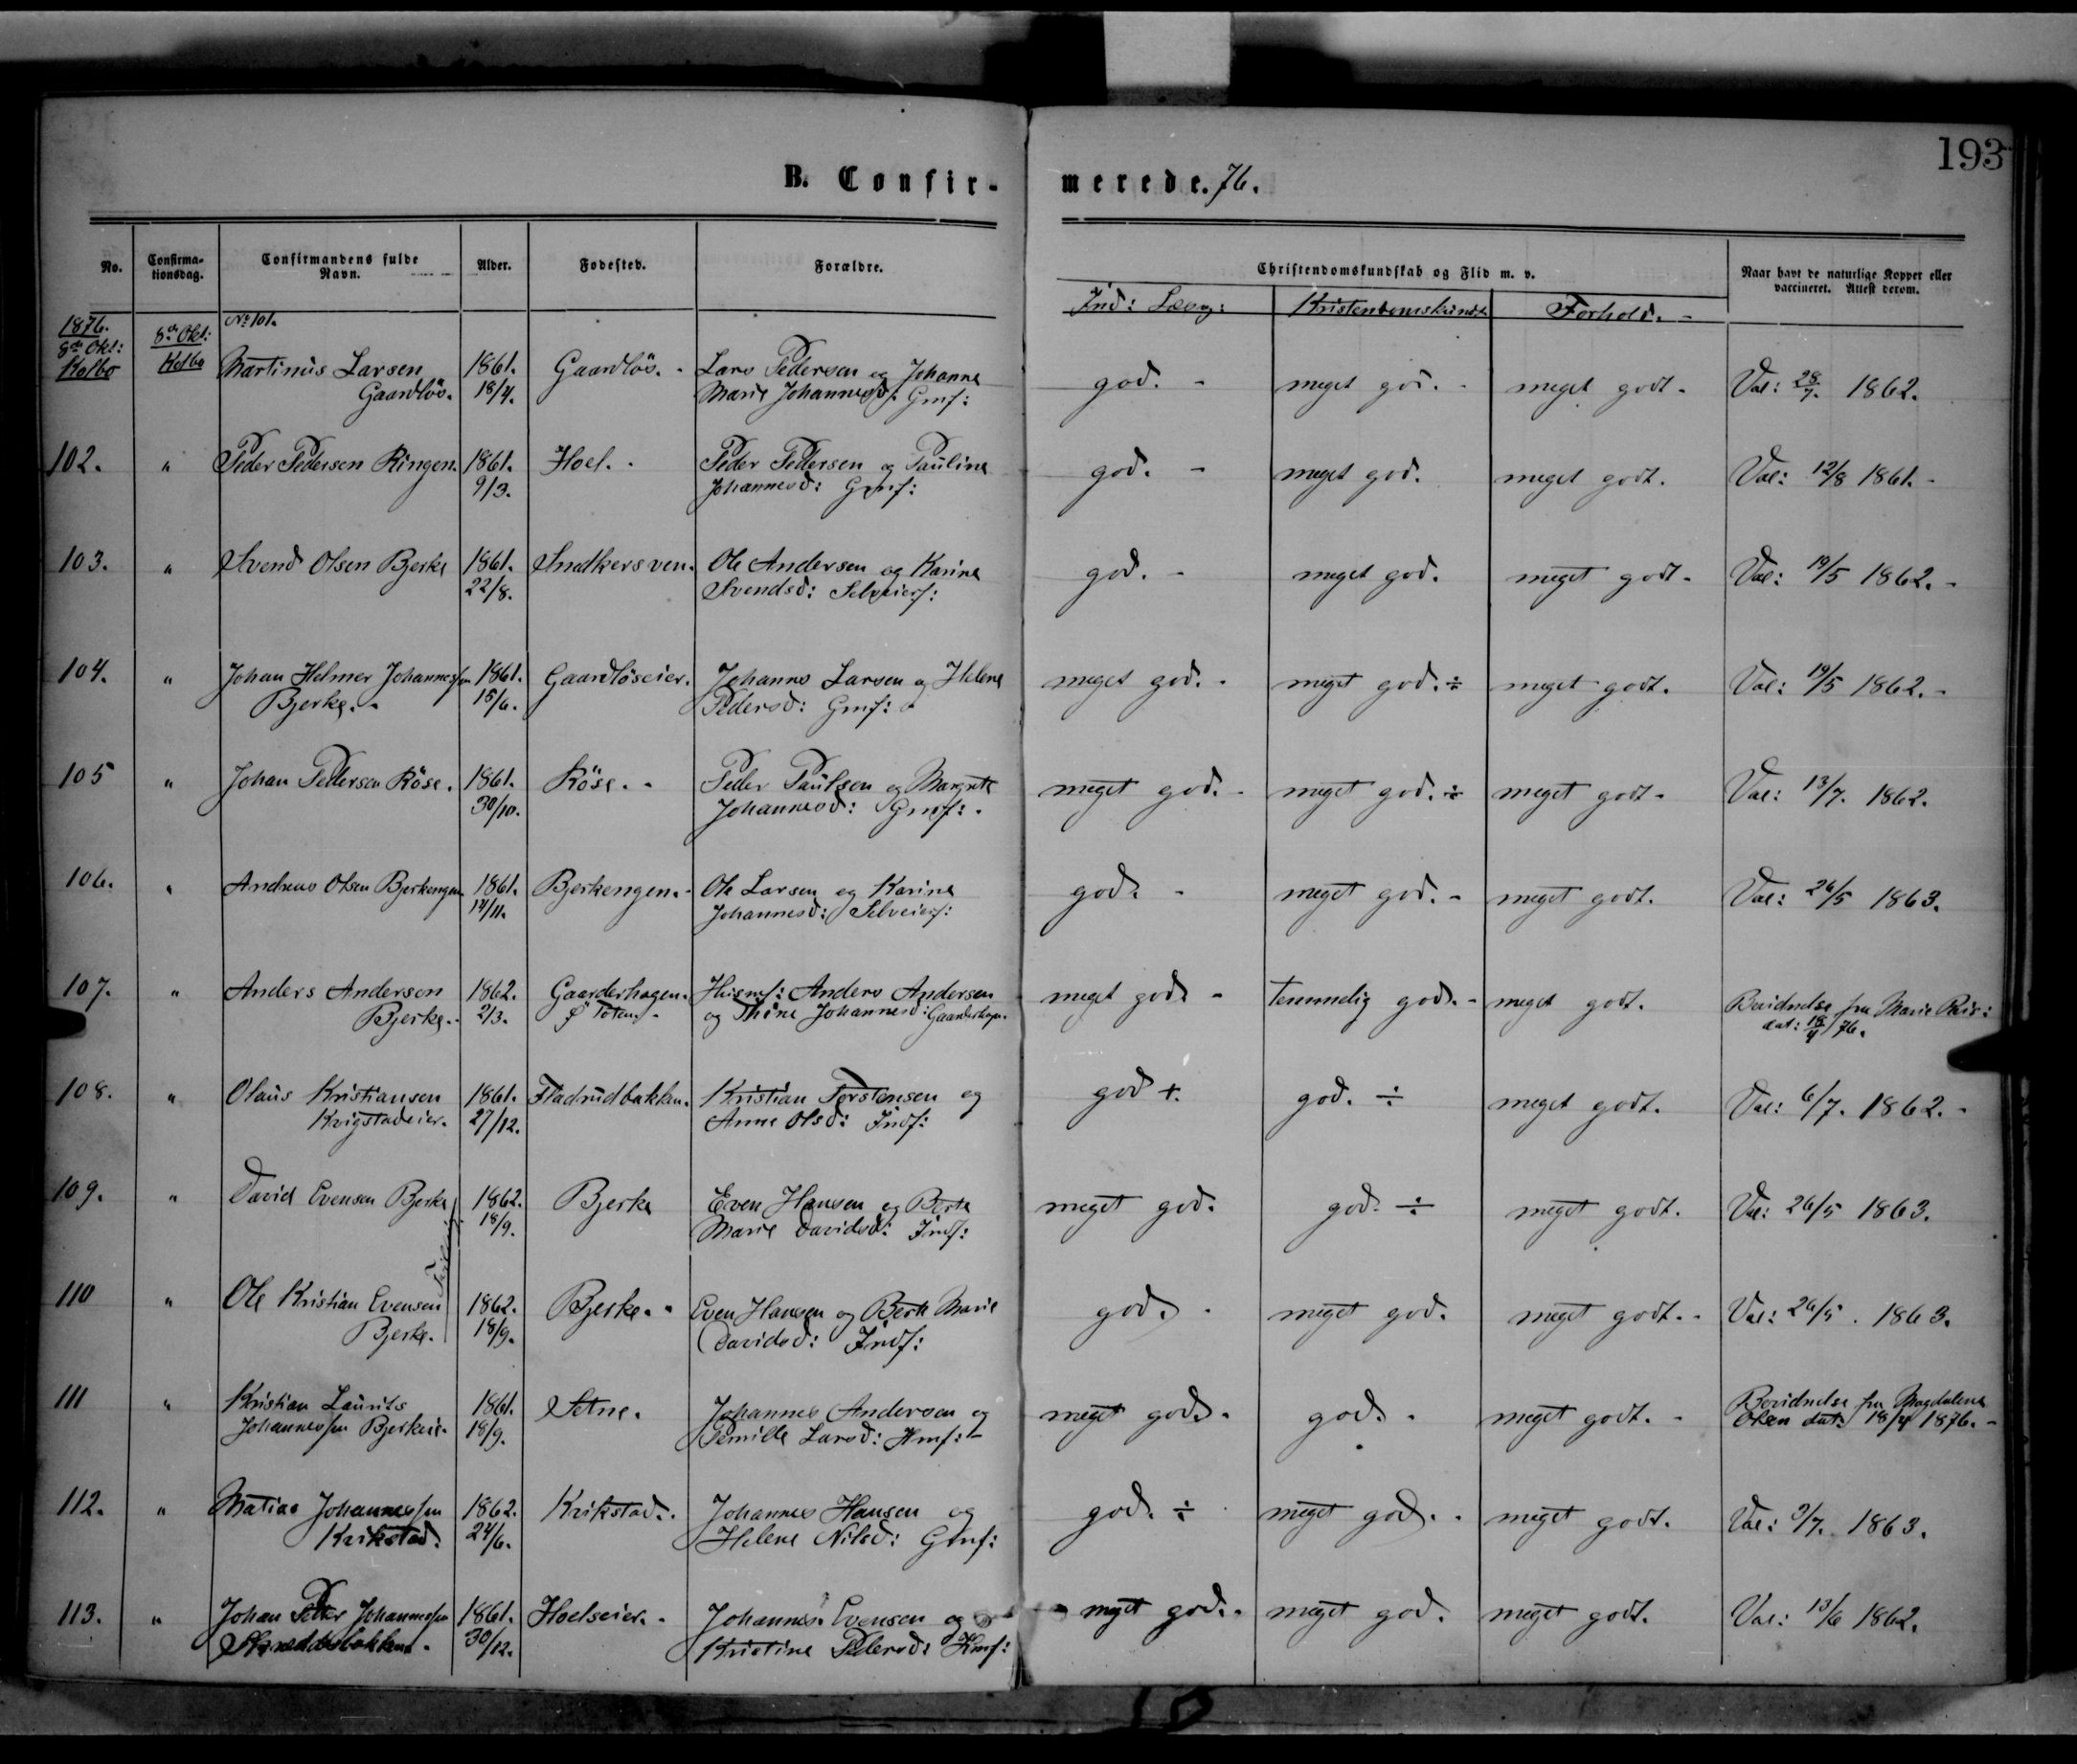 193
B. Confir- merede. 76.
No. Confirma-tionsdag. Confirmandens fulde Navn. Alder. Fødested. Forældre. Christendomskundskab og Flid m. v. Naar havt de naturlige Kopper eller vaccineret. Attest derom.
Ind: Læsn: Kristendomskundsk Forhold. -
1876. 8de Okt: Kolbo 8de Okt: Kolbo No 101.
Martinus Larsen 1861. Gaardløs. - Lars Pedersen og Johanne god. - meget god. - meget godt. - Vac: 28/7. 1862.
Gaardløs. 18/4. Marie Johannesd: Gmf:
102. " Peder Pedersen Ringen. 1861. Hoel. - Peder Pedersen og Pauline god. - meget god. meget godt. Vac: 12/8 1861. -
9/3. Johannesd: Gmf:
103. " Svend Olsen Bjerke 1861. Snedkersven. Ole Andersen og Karine god. - meget god. meget godt. - Vac: 19/5 1862. -
22/8. Svendsd: Selveierf:
104. " Johan Helmer Johannessen 1861. Gaardløseier. Johannes Larsen og Helene meget god. - meget god. ÷ meget godt. Vac: 19/5 1862. -
Bjerke. - 15/6. Pedersd: Gmf: -
105 " Johan Pedersen Röse. 1861. Röse. - Peder Paulsen og Margrete meget god. - meget god. ÷ meget godt. - Vac: 13/7. 1862.
30/10. Johannesd: Gmf: -
106. " Andreas Olsen Bjerkengen. 1861. Bjerkengen. - Ole Larsen og Karine god. - meget god. - meget godt. Vac: 26/5 1863.
14/11. Johannesd: Selveierf:
107. " Anders Andersen 1862. Gaarderhagen. Husmf: Anders Andersen meget god. - temmelig god. - meget godt. Bevidnelse fra Marie
Bjerke. - 2/3. Ø Toten. og Thine Johannesd: Gaarderhagen. dat: 18/4 76.
108. " Olaus Kristiansen 1861. Fladrudbakken. Kristian Torstensen og god +. god. ÷ meget godt. Vac: 6/7. 1862. -
Krigstadeier. 27/12. Anne Olsd: Indf:
109. " David Evensen Bjerke 1862. Bjerke Even Hansen og Berte meget god. god. ÷ meget godt. Vac: 26/5 1863.
18/9. Marie Davidsd: Indf:
Tvilling.
110 " Ole Kristian Evensen 1862. Bjerke. - Even Hansen og Berte Marie god. - meget god. meget godt. - Vac: 26/5. 1863.
Bjerke. 18/9. Davidsd: Indf:
111 " Kristian Laurits 1861. Setne. Johannes Andersen og meget god. - god. - meget godt. - Bevidnelse fra Magdalene
Johannessen Bjerkeie. 18/9. Pernille Larsd: Hmf: - Olsen dat: 18/4 1876. -
112. " Matias Johannessen 1862. Krikstad. Johannes Hansen og god. ÷ meget god. - meget godt. Vac: 3/7. 1863.
Krikstad. 24/6. Helene Nilsd: Gmf:
113. " Johan Peter Johannessen 1861. Hoelseier. - Johannes Evensen og meget god. - meget god. meget godt. Vac: 13/6 1862.
30/12. Kristine Pedersd: Hmf:
10